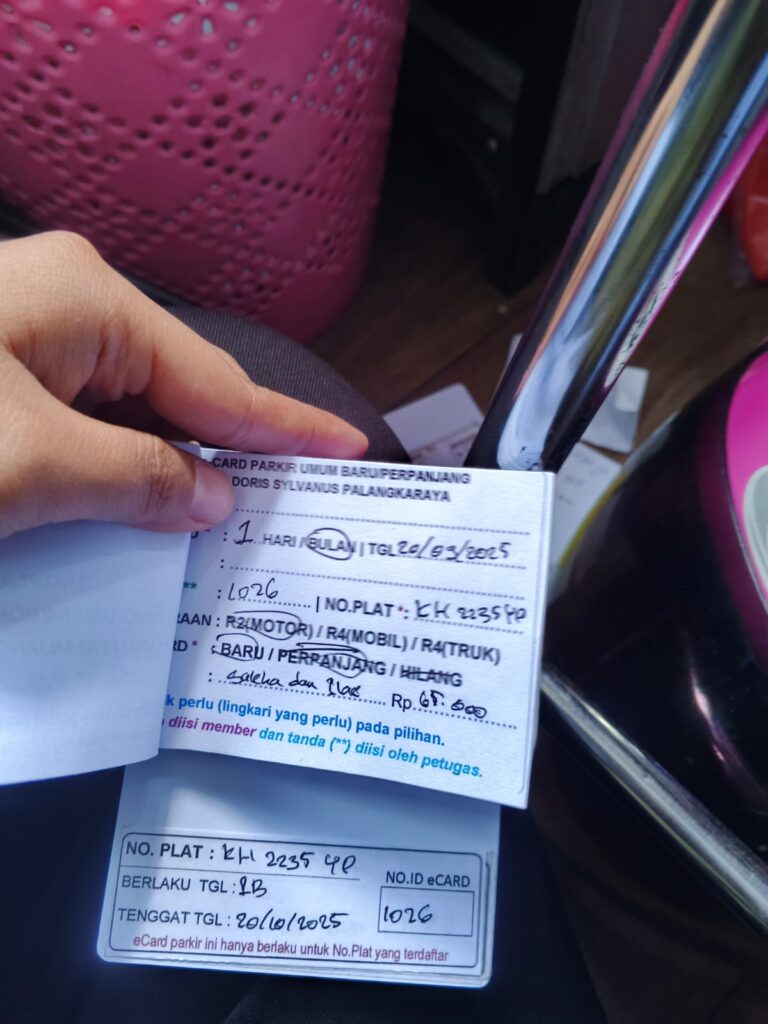 CARD PARKIR UMUM BARU/PERPANJANG
DORIS SYLVANUS PALANGKARAYA
* : 1 HARI / BULAN | TGL 20/09/2025
:
** : 1026 | NO.PLAT * : KH 2235 YP
RAAN : R2(MOTOR) / R4(MOBIL) / R4(TRUK)
RD * : BARU / PERPANJANG / HILANG
: dan Rp. 65.000
k perlu (lingkari yang perlu) pada pilihan.
diisi member dan tanda (**) diisi oleh petugas.
NO. PLAT : KH 2235 YP
BERLAKU TGL : 1B
TENGGAT TGL : 20/10/2025
NO.ID eCARD
1026
eCard parkir ini hanya berlaku untuk No.Plat yang terdaftar